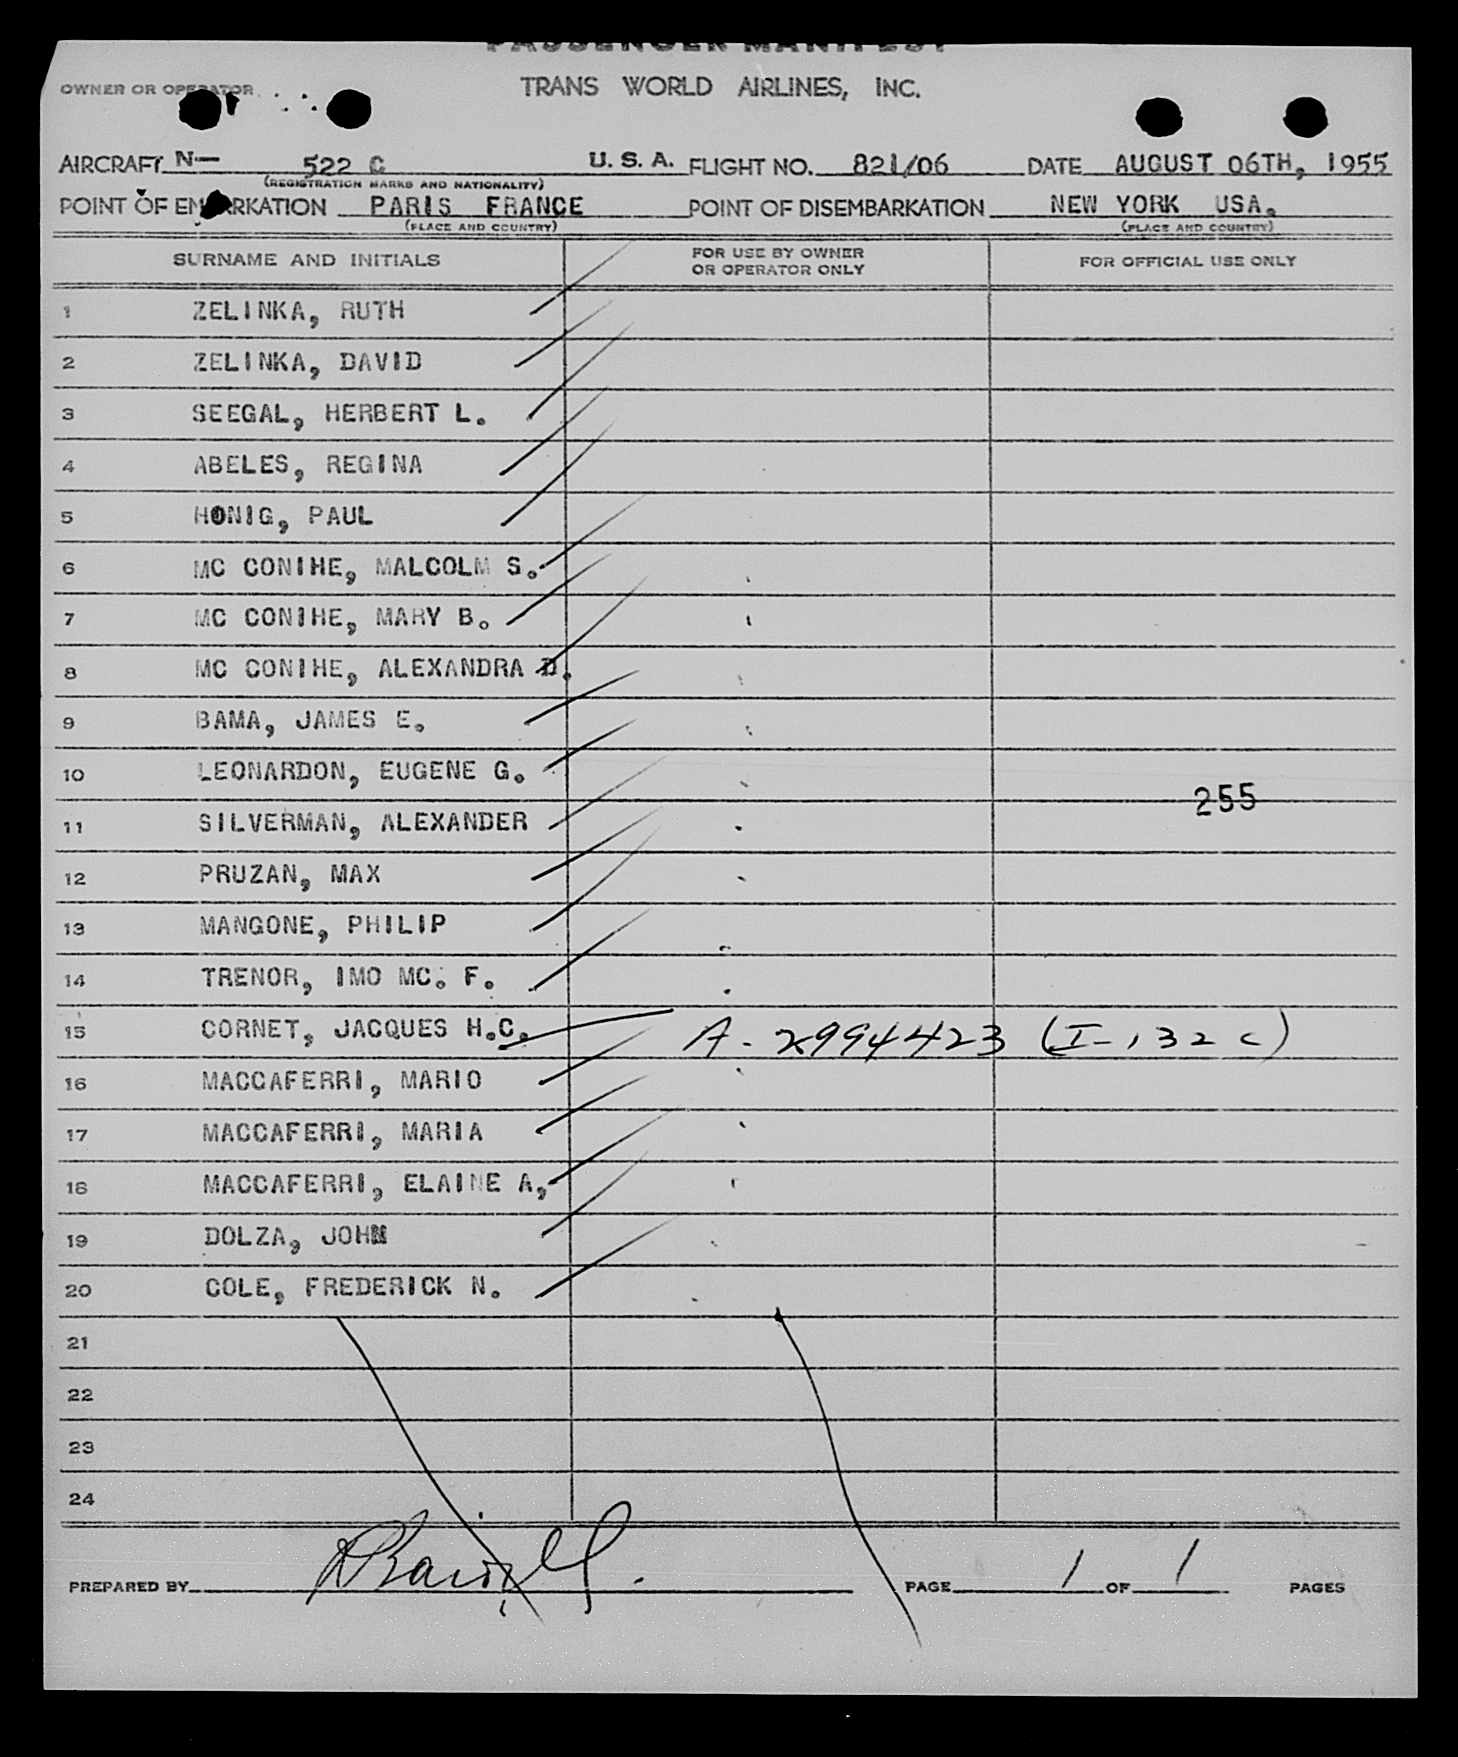 PASSENGER MANIFEST
OWNER OR OPERATOR TRANS WORLD AIRLINES, INC.
AIRCRAFT N— 522 C U. S. A. FLIGHT NO. 821/06 DATE AUGUST 06TH, 1955
(REGISTRATION MARKS AND NATIONALITY)
POINT OF EMBARKATION PARIS FRANCE POINT OF DISEMBARKATION NEW YORK USA.
(PLACE AND COUNTRY) (PLACE AND COUNTRY)
SURNAME AND INITIALS FOR USE BY OWNER OR OPERATOR ONLY FOR OFFICIAL USE ONLY
1 ZELINKA, RUTH
2 ZELINKA, DAVID
3 SEEGAL, HERBERT L.
4 ABELES, REGINA
5 HONIG, PAUL
6 MC CONIHE, MALCOLM S.
7 MC CONIHE, MARY B.
8 MC CONIHE, ALEXANDRA D.
9 BAMA, JAMES E.
10 LEONARDON, EUGENE G.
255
11 SILVERMAN, ALEXANDER
12 PRUZAN, MAX
13 MANGONE, PHILIP
14 TRENOR, IMO MC. F.
15 CORNET, JACQUES H.C. A- 2994423 (I-132 c)
16 MACCAFERRI, MARIO
17 MACCAFERRI, MARIA
18 MACCAFERRI, ELAINE A,
19 DOLZA, JOHN
20 COLE, FREDERICK N.
21
22
23
24
PREPARED BY PAGE 1 OF 1 PAGES